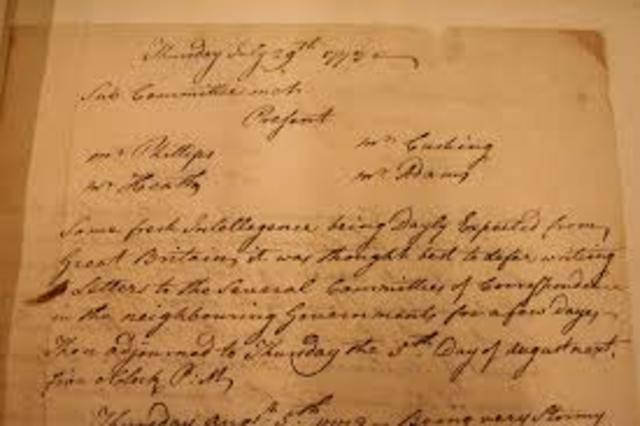 Thursday July 29th 1773
Sub Committee met.
Present
Mr Phillips Mr Cushing
Mr Heath Mr Adams
Some fresh Intellegence being Dayly Expected from
Great Britain, it was thought best to defer writing
Letters to the Several Committees of Correspondence
in the neighbouring Governments for a few days,
Then adjourned to Thursday the 5th Day of August next,
five oClock P:M,
Thursday Augt 5th 1773 Being very Stormy